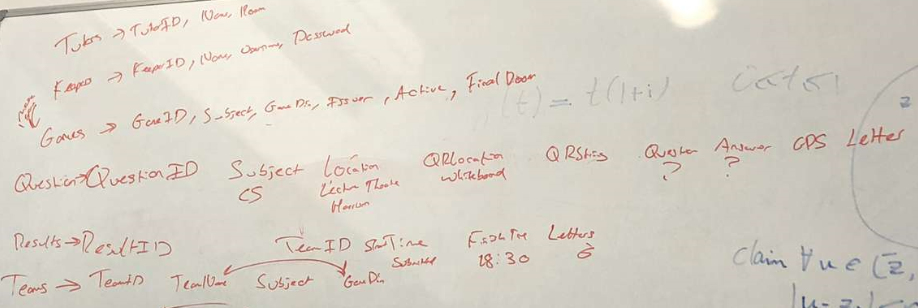 Tutors → TutorID, Name, Room
Keepers → KeeperID, Name, Username, Password
Games → GameID, Subject, GameDir, Issuer, Active, Final Door
(t) = t(1+i) 0≤t≤1
Question → QuestionID Subject Location QRLocation QRString Question Answer GPS Letter
CS Lecture Theatre Whiteboard ? ?
Harrison
Results → ResultID TeamID StartTime FinishTime Letters
Submitted 18:30 6
Teams → TeamID TeamName Subject GameDir
Claim ∀u ∈ [z,
|u-z.|